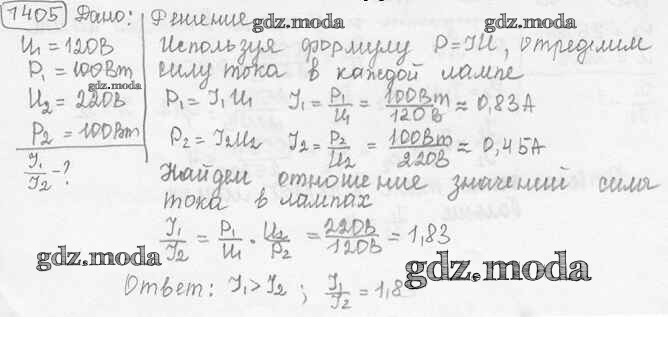 1405 Дано: Решение
gdz.moda
U₁ = 120В
P₁ = 100Вт
gdz.moda
U₂ = 220В
P₂ = 100Вт
I₁/I₂ - ?
Используя формулу P=IU, определим
силу тока в каждой лампе
P₁ = I₁U₁ I₁ = P₁/U₁ = 100Вт/120В ≈ 0,83А
P₂ = I₂U₂ I₂ = P₂/U₂ = 100Вт/220В ≈ 0,45А
Найдем отношение значений силы
тока в лампах
I₁/I₂ = P₁/U₁ · U₂/P₂ = 220В/120В = 1,83
gdz.moda
gdz.moda
Ответ: I₁ > I₂ ; I₁/I₂ = 1,8